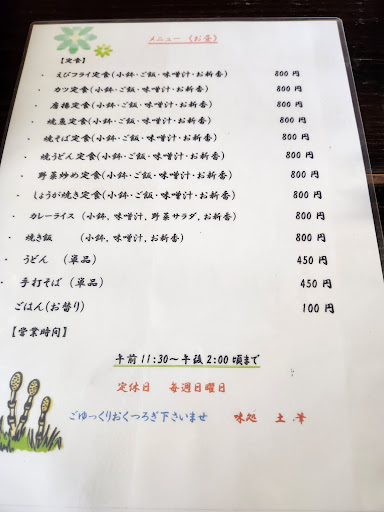 メニュー (お昼)
【定食】
・ えびフライ定食(小鉢・ご飯・味噌汁・お新香) 800 円
・ カツ定食(小鉢・ご飯・味噌汁・お新香) 800 円
・ 唐揚定食(小鉢・ご飯・味噌汁・お新香) 800 円
・ 焼魚定食(小鉢・ご飯・味噌汁・お新香) 800 円
・ 焼そば定食(小鉢・ご飯・味噌汁・お新香) 800 円
・ 焼うどん定食(小鉢・ご飯・味噌汁・お新香) 800 円
・ 野菜炒め定食(小鉢・ご飯・味噌汁・お新香) 800 円
・ しょうが焼き定食(小鉢・ご飯・味噌汁・お新香) 800 円
・ カレーライス (小鉢,味噌汁,野菜サラダ,お新香) 800 円
・ 焼き飯 (小鉢,味噌汁,お新香) 800 円
・ うどん (単品) 450 円
・ 手打そば (単品) 450 円
ごはん(お替り) 100 円
【営業時間】
午前 11:30～午後 2:00 頃まで
定休日 毎週日曜日
ごゆっくりおくつろぎ下さいませ 味処 土筆